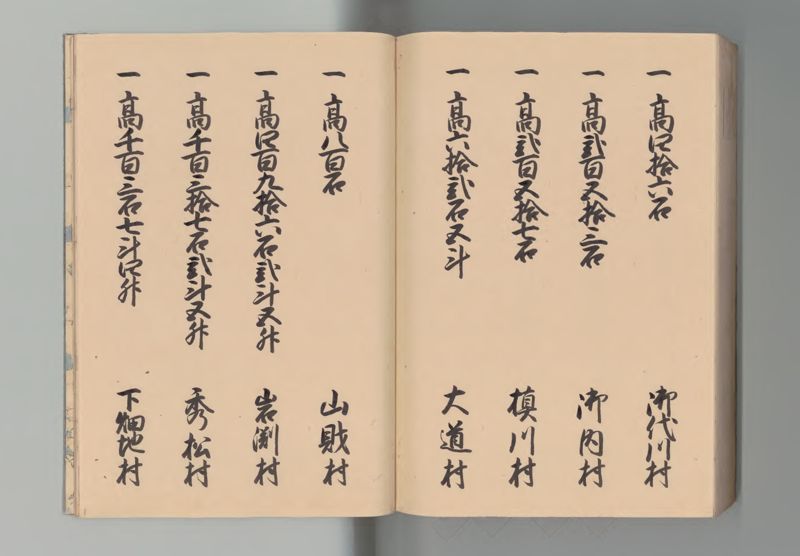 一高四拾六石 御代川村
一高弐百五拾三石 御内村
一高弐百五拾七石 槙川村
一高六拾弐石五斗 大道村
一高八百石 山財村
一高四百九拾六石弐斗五升 岩渕村
一高千百三拾七石弐斗五升 秀松村
一高千百三石七斗四升 下畑地村